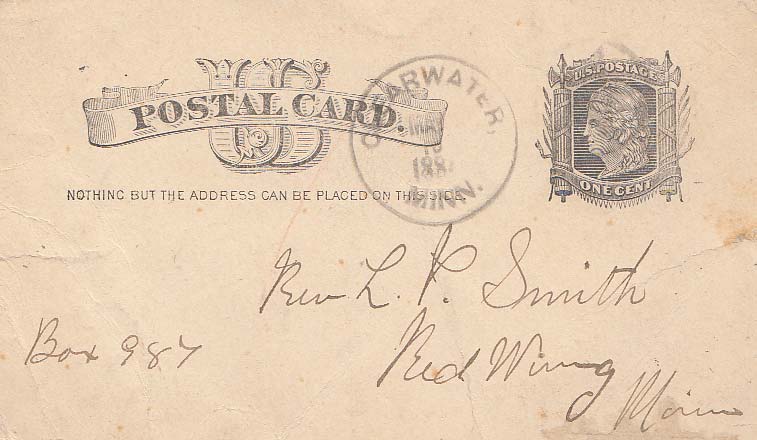 US
POSTAL CARD.
NOTHING BUT THE ADDRESS CAN BE PLACED ON THIS SIDE.
CLEARWATER,
MINN.
U.S. POSTAGE
ONE CENT
Rev L. P. Smith
Box 987
Red Wing
Minn